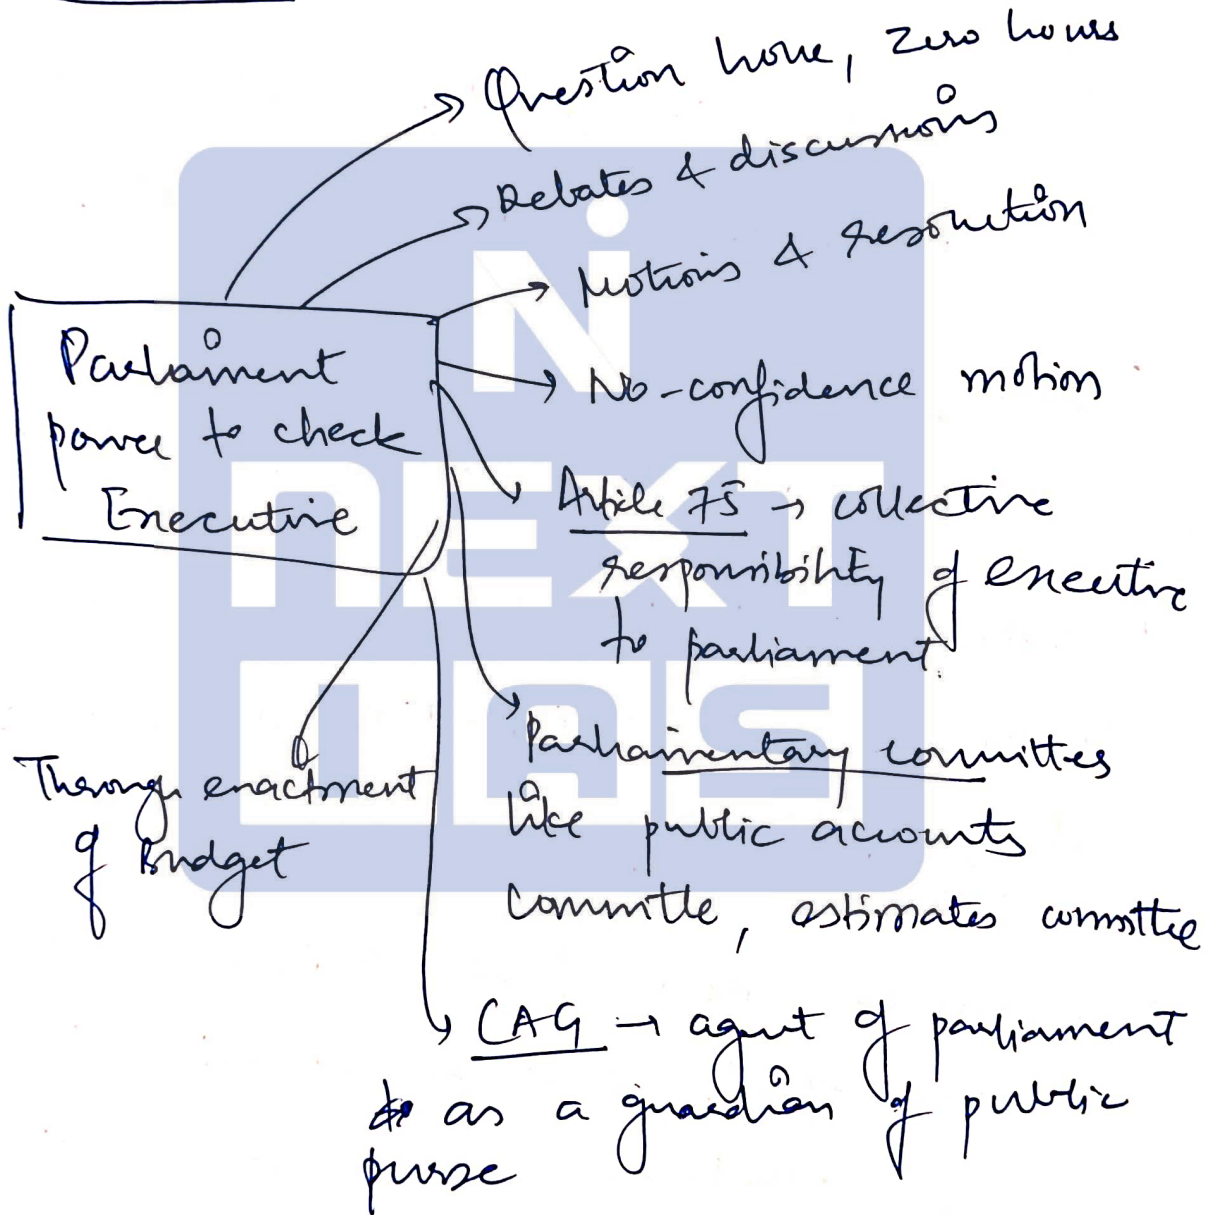 Question hour, Zero hours
Debates & discussions
Motions & resolution
Parliament
power to check
Executive
No-confidence motion
Article 75 → collective
responsibility of executive
to parliament.
Parliamentary committes
like public accounts
committee, estimates committee
Through enactment
of Budget
CAG → agent of parliament
as a guardian of public
purse
NEXT
IAS